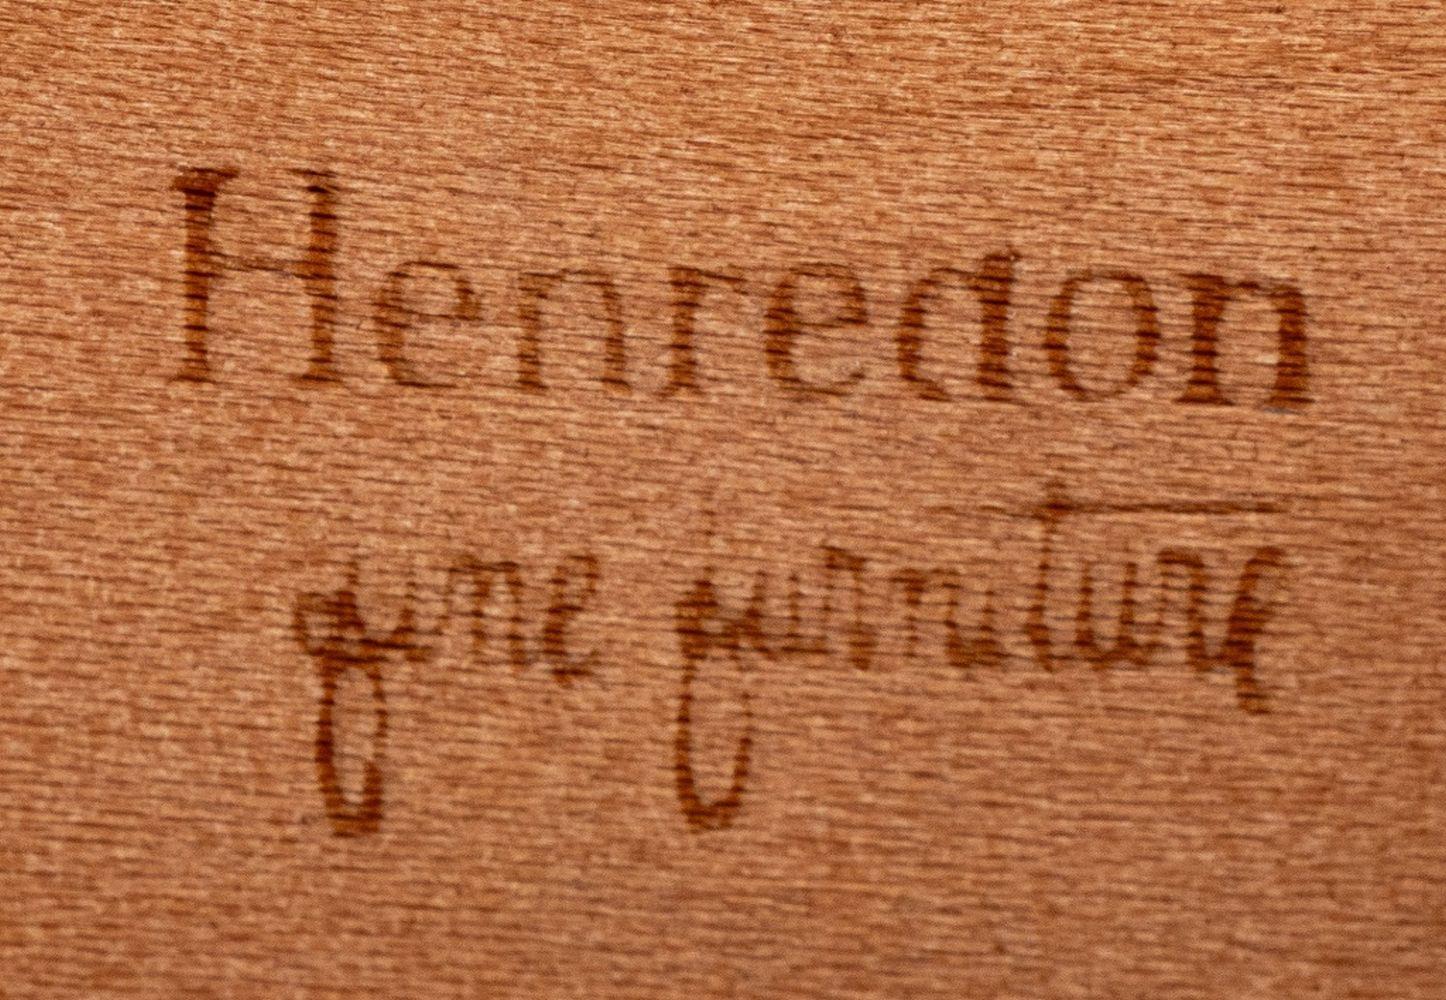 Henredon
fine furniture